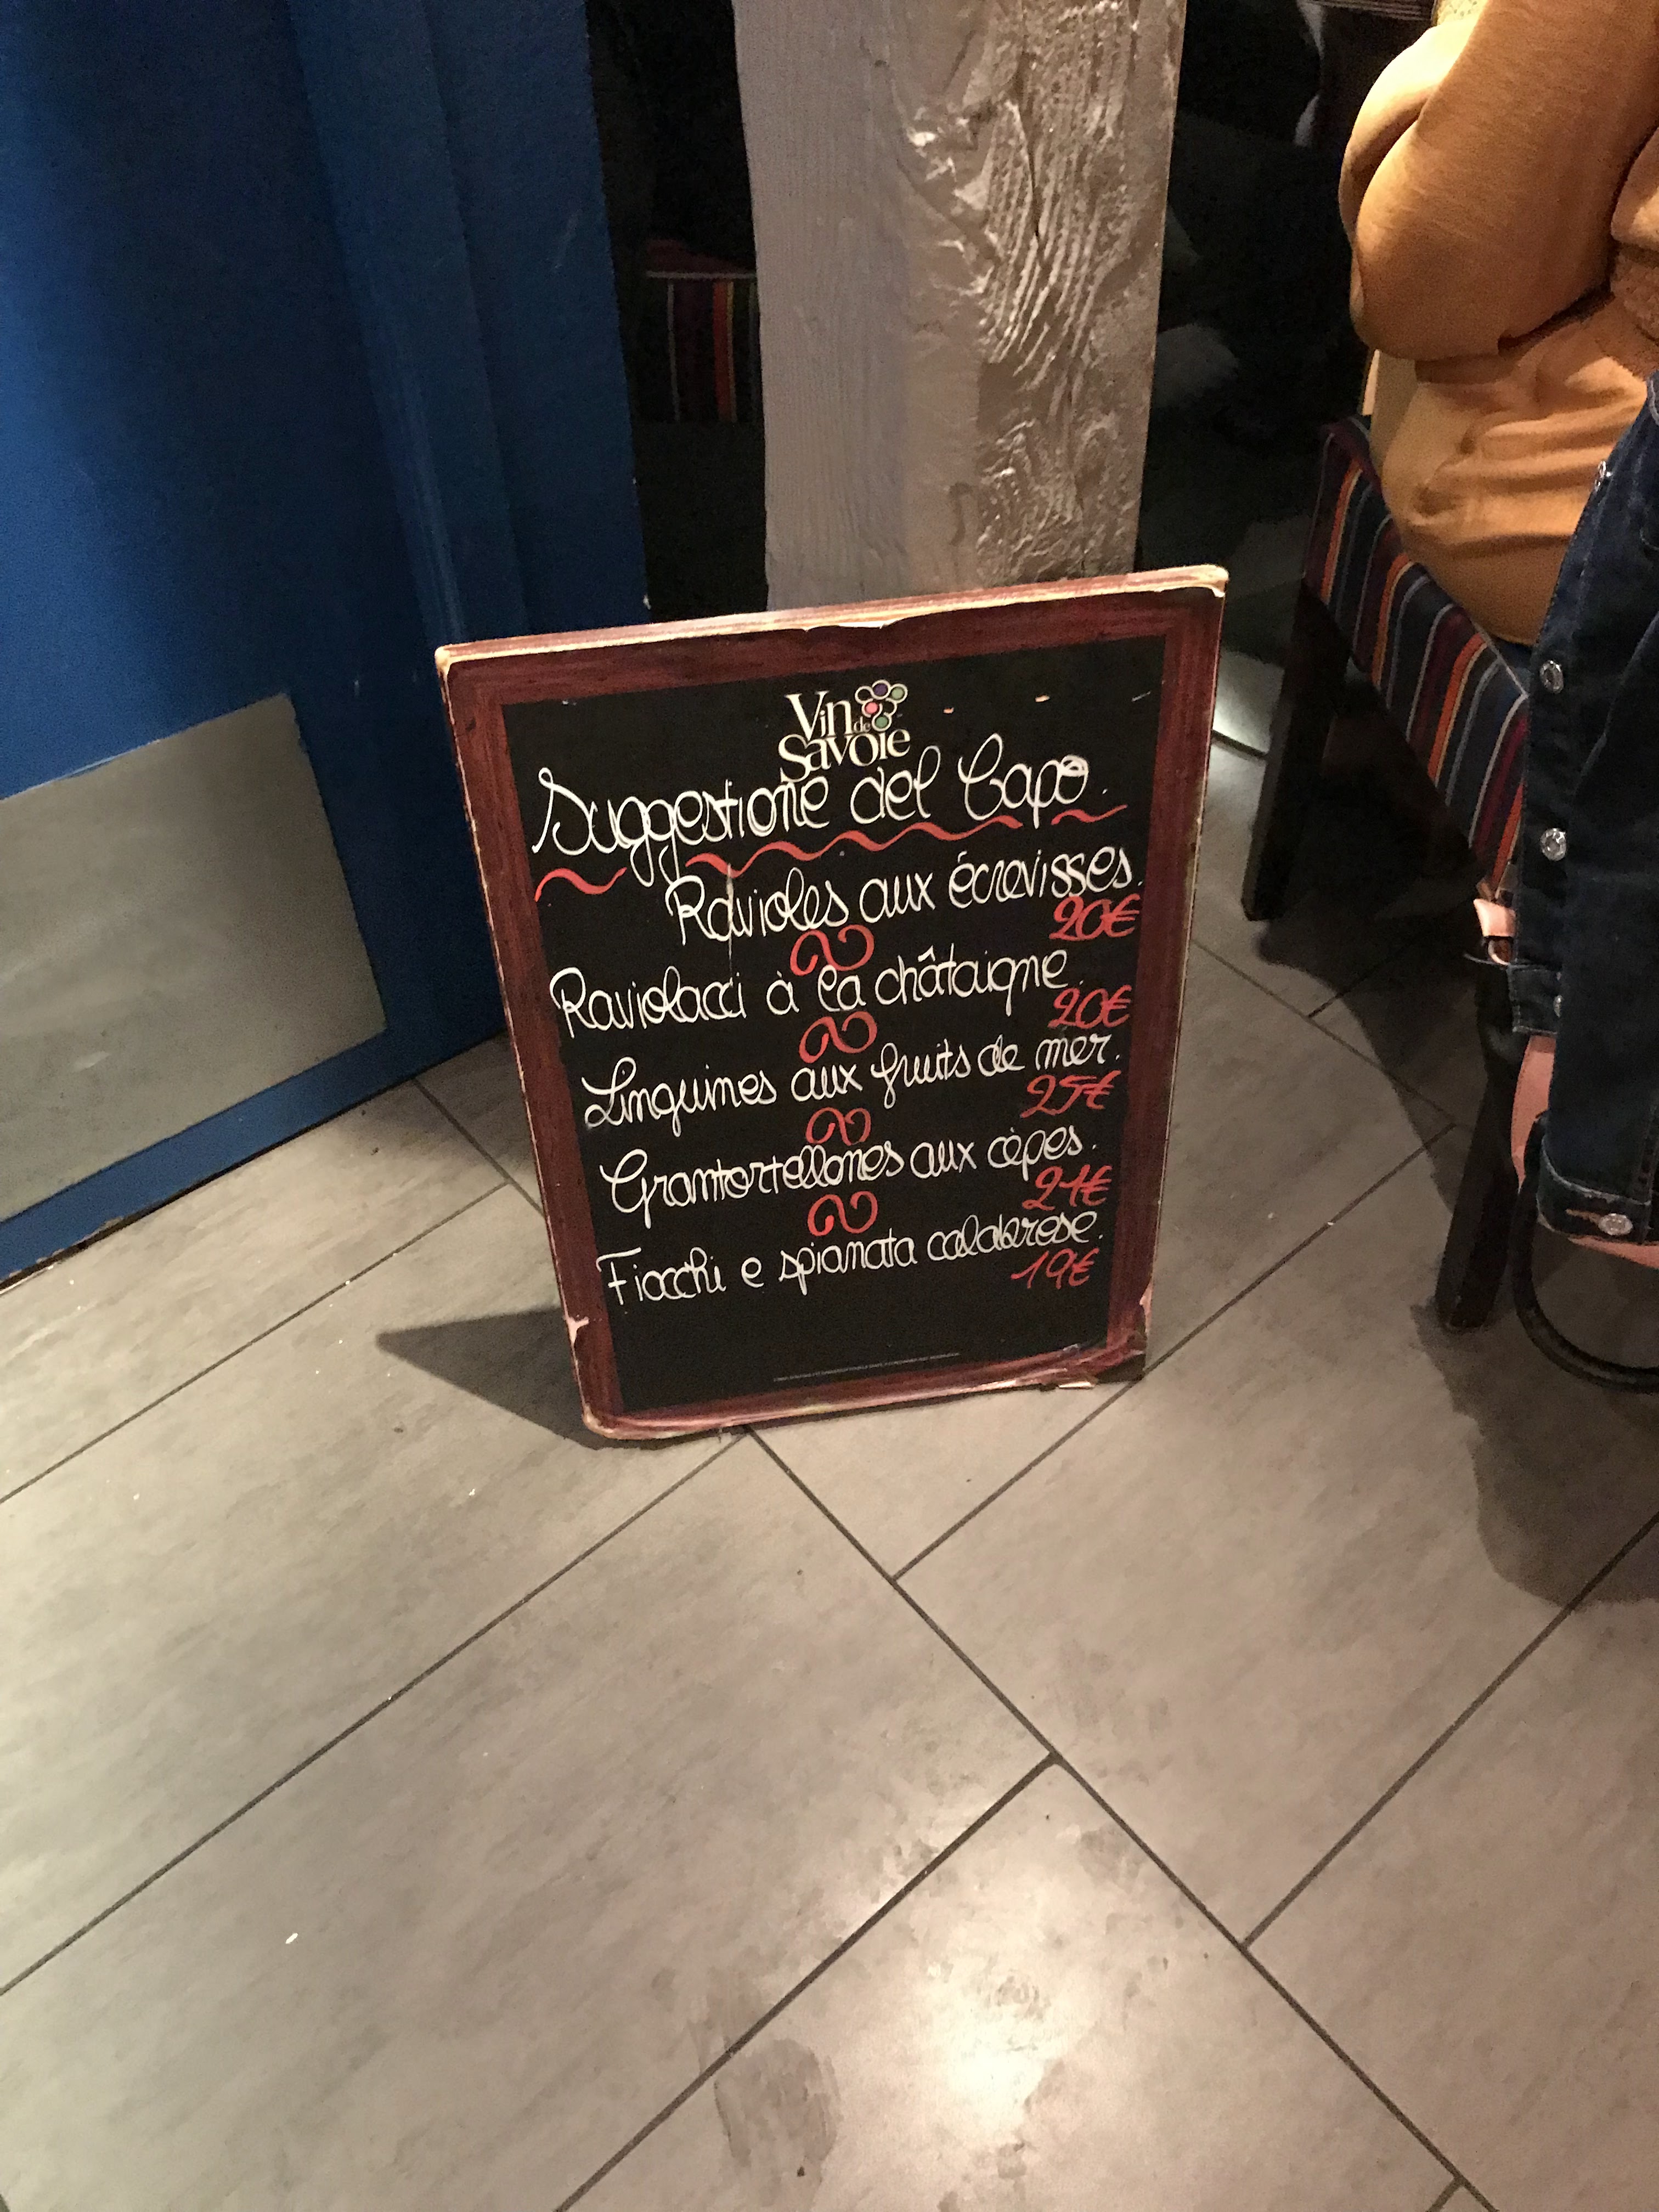 Vin de
Savoie
Suggestione del Capo.
Ravioles aux écrevisses.
20€
Raviolacci à la châtaigne.
20€
Linguines aux fruits de mer.
25€
Grantortellones aux cèpes.
21€
Fiocchi e spianata calabrese.
19€